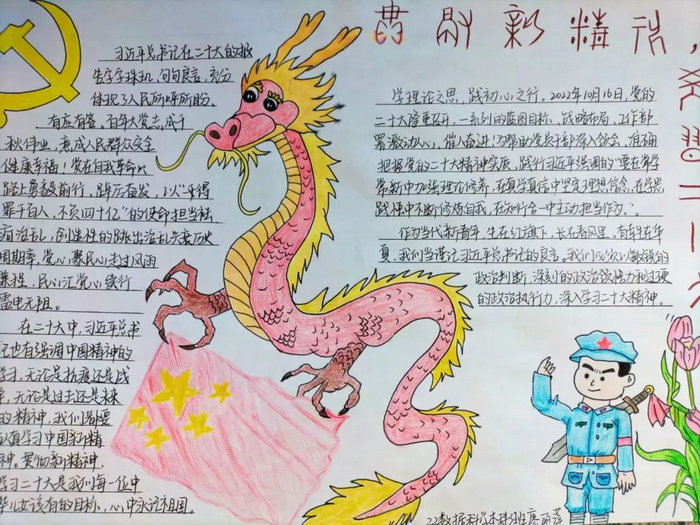 贯彻新精神,
学习二十大
习近平总书记在二十大的报
告字字珠玑,句句良言,充分
体现了人民所呼所盼、
有应有答。百年大党志成千
秋伟业,素成人民群众安全
健康幸福!党在自我革命
踔上勇毅前行,踔厉奋发,以"
罪千百人,不负四十亿"的使命担当
有治乱,创造性的跳出治乱兴衰历史
周期率,党心聚民心走过风雨
兼程,民心汇党心续行
雷电无阻。
在二十大中,习近平总书
记也有强调中国精神的
学习,无论是抗疫还是战
争,无论是过去还是未来
的精神,我们都要
认真学习中国新精
神。贯彻新精神,
学习二十大是我们每一位中
华儿女该有的目标,心中永记祖国。
学理论之思,践初心之行。2022年10月16日,党的
二十大隆重召开,一系列的蓝图目标、战略布局、工作部
署激动人心,催人奋进!为帮助党员干部深入领会、准确
把握党的二十大精神实质,践行习近平强调的"要在常学
常新中加强理论修养,在真学真信中坚定理想信念,在学思
践悟中不断修炼自我,在知行合一中主动担当作为"。
作为当代新青年,生在红旗下,长在春风里,
夏,我们当谨记习近平总书记的良言。我们必须以敏锐的
政治判断,深刻的政治领悟力和过硬
的政治执行力,深入学习二十大精神。
22数据科学本科班